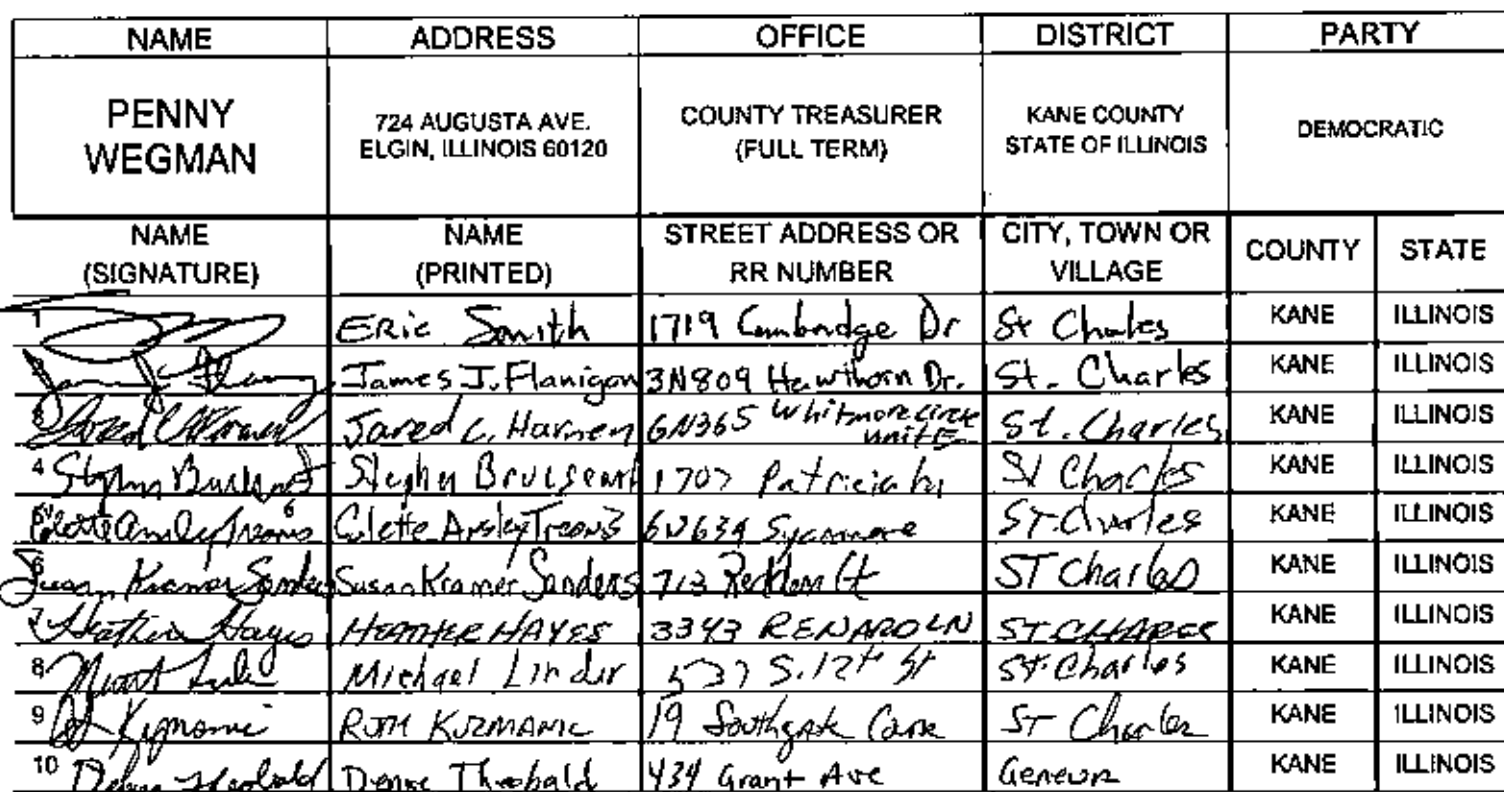 NAME ADDRESS OFFICE DISTRICT PARTY
PENNY WEGMAN 724 AUGUSTA AVE. ELGIN, ILLINOIS 60120 COUNTY TREASURER (FULL TERM) KANE COUNTY STATE OF ILLINOIS DEMOCRATIC
NAME (SIGNATURE) NAME (PRINTED) STREET ADDRESS OR RR NUMBER CITY, TOWN OR VILLAGE COUNTY STATE
1 Eric Smith 1719 Cambridge Dr St Charles KANE ILLINOIS
2 James J. Flanigan 3N809 Hawthorn Dr. St. Charles KANE ILLINOIS
3 Jared C. Harmen 6N365 Whitmore Circle unit E St. Charles KANE ILLINOIS
4 1707 Patricia ln St Charles KANE ILLINOIS
5 Colette 6N634 Sycamore ST Charles KANE ILLINOIS
6 Susan Kramer Sanders Susan Kramer Sanders 713 Ct ST Charles KANE ILLINOIS
7 Heather Hayes HEATHER HAYES 3343 RENARD LN ST CHARLES KANE ILLINOIS
8 Michael Linder 537 S. 12th St St. Charles KANE ILLINOIS
9 RUTH KUZMANIC 19 Southgate ST Charles KANE ILLINOIS
10 Denise Theobald Denise Theobald 434 Grant Ave Geneva KANE ILLINOIS